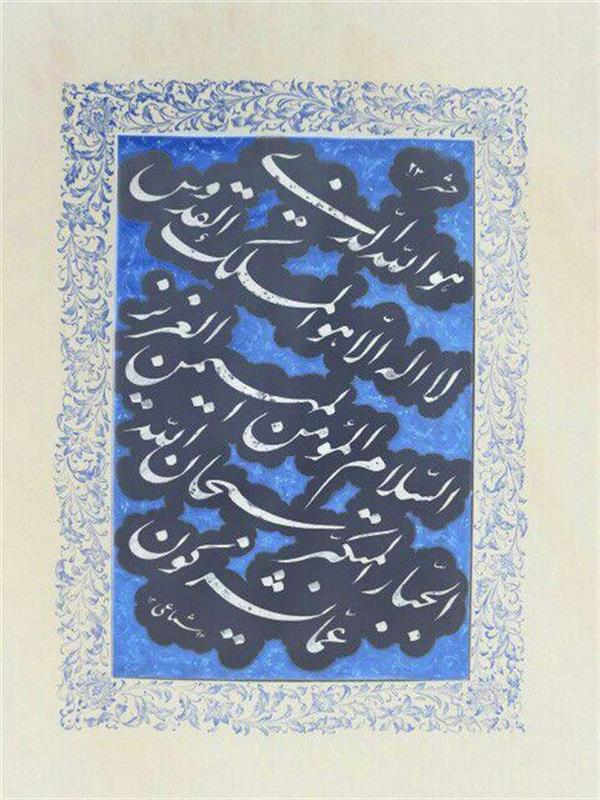 حشر ۲۳
هو اللّه الذی
لا اله الّا هو الملک القدوس
السّلام المؤمن المهیمن العزیز
الجبّار المتکبّر سبحان اللّه
عمّا یشرکون